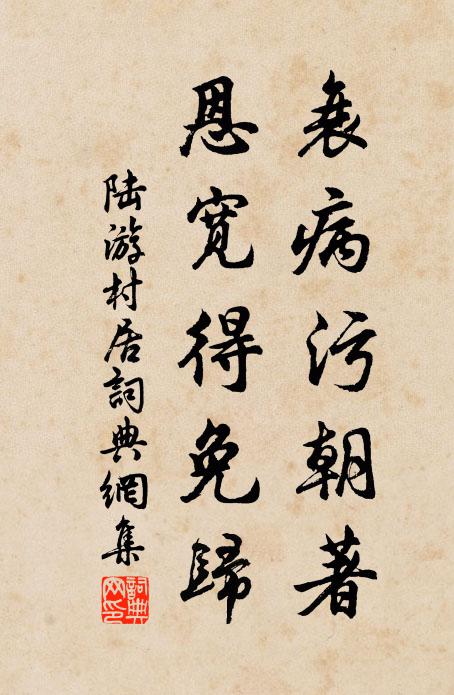 衰病污朝著
恩寬得免歸
陆游村居詞典網集
詞典